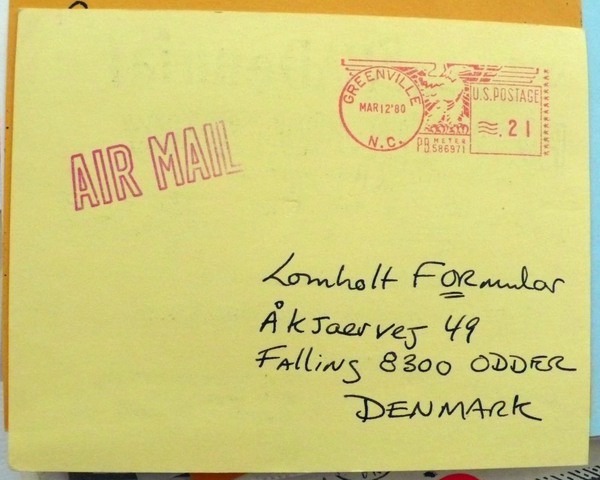 GREENVILLE
MAR12'80
N.C.
U.S. POSTAGE
.21
PB METER
586971
AIR MAIL
Lomholt FORmular
Åkjaervej 49
Falling 8300 ODDER
DENMARK